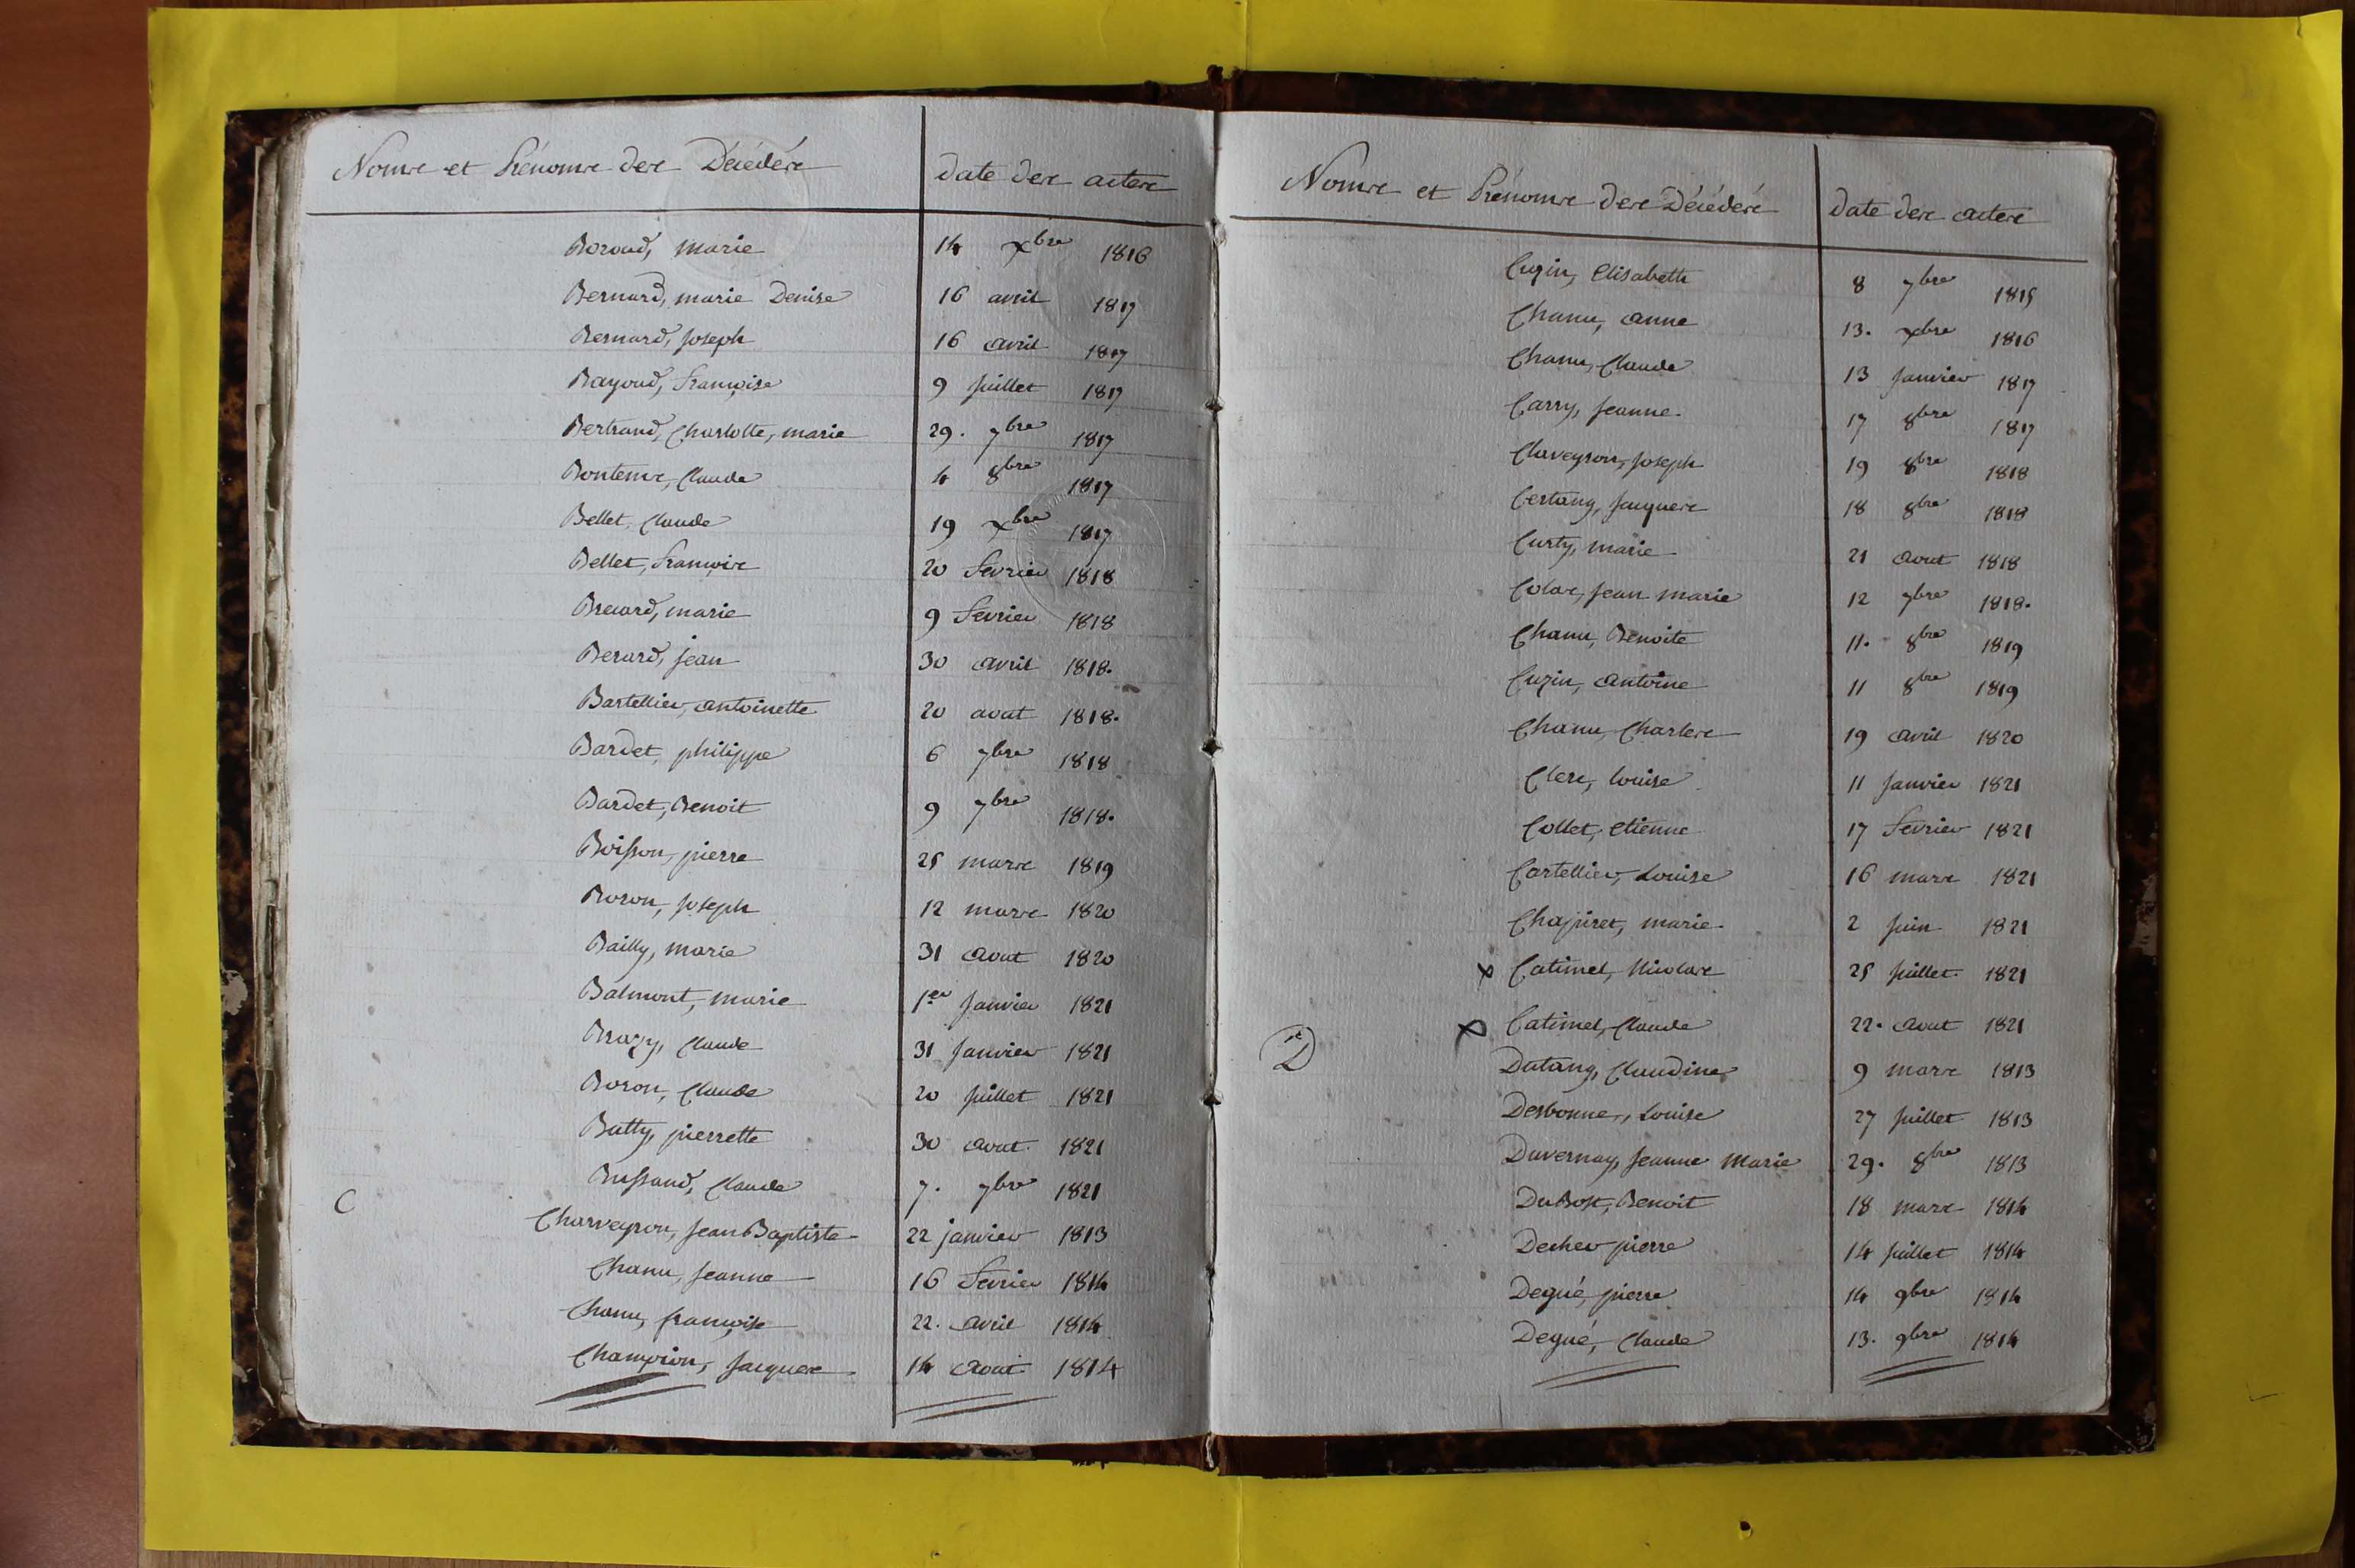 Noms et Prénoms des Décédés
date des actes
Boroud, marie 14 xbre 1816
Bernard, marie Denise 16 avril 1817
Bernard, Joseph 16 avril 1817
Bayoud, Françoise 9 Juillet 1817
Bertrand, Charlotte, marie 29. 7bre 1817
Bontems, Claude 4 8bre 1817
Bellet, Claude 19 xbre 1817
Bellet, François 20 Fevrier 1818
Brevard, marie 9 Fevrier 1818
Berard, jean 30 avril 1818.
Bartellier, antoinette 20 aout 1818.
Bardet, philippe 6 7bre 1818
Bardet, Benoit 9 7bre 1818.
Boisson, pierre 25 mars 1819
Boron, Joseph 12 mars 1820
Bailly, marie 31 aout 1820
Balmont, marie 1er Janvier 1821
Brazy, Claude 31 Janvier 1821
Boron, Claude 20 Juillet 1821
Batty, pierrette 30 aout 1821
Bussand, Claude 7. 7bre 1821
C
Charveyron, Jean Baptiste 22 janvier 1813
Chanu, Jeanne 16 Fevrier 1814
Chanu, françoise 22. avril 1814
Champion, Jacques 14 aout 1814
Noms et Prénoms des Décédés
date des actes
Cuzin, Elisabeth 8 7bre 1815
Chanu, anne 13. xbre 1816
Chanu, Claude 13 Janvier 1817
Carry, Jeanne. 17 8bre 1817
Claveyron, Joseph 19 8bre 1818
Certang, Jacques 18 8bre 1818
Curty, marie 21 aout 1818
Colas, Jean marie 12 7bre 1818.
Chanu, Benoite 11. 8bre 1819
Cuzin, antoine 11 8bre 1819
Chanu, Charles 19 avril 1820
Clerc, louise 11 Janvier 1821
Collet, etienne 17 Fevrier 1821
Cartellier, Louise 16 mars 1821
Chapiret, marie 2 Juin 1821
x Catimel, Nicolas 25 Juillet 1821
x Catimel, Claude 22. aout 1821
D
Dutang, Claudine 9 mars 1813
Desbonne, Louise 27 Juillet 1813
Duvernay, Jeanne Marie 29. 8bre 1813
DuBost, Benoit 18 mars 1814
Decher pierre 14 Juillet 1814
Degué, pierre 14 9bre 1814
Degué, Claude 13. 9bre 1814